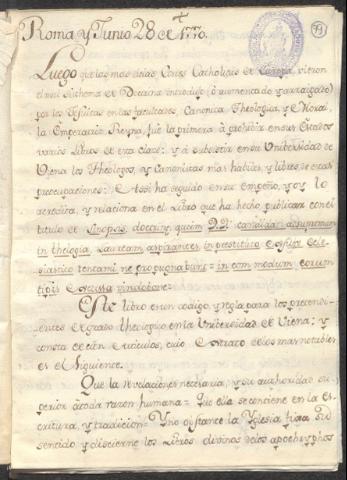 Roma y Junio 28 de 1770.
Luego que las mas de las Cortes Catholicas de Europa vieron
el mal Systhema de Doctrina introducido ò aumentado y arraigado
por los Jesuitas en las facultades, Canonica Theologica, y Moral,
la Emperatriz Reyna, fue la primera à prohibir en sus Estados
varios Libros de esta clase: y à substituir en su Universidad de
Viena los Theologos, y Canonistas mas habiles, y libres de estas
preocupaciones: Assi ha seguido en su empeño, y oy lo
acredita, y relaciona en el Libro que ha hecho publicar con el
titulo de Synopsis doctrinæ quam D.D. candidati ad summam
in theologia, Lauream aspirantes in prestituto
tipis
Este libro es un codigo, y regla para los pretendi-
entes al grado theologico en la Universidad de Viena: y
consta de cien articulos, cuio extracto de los mas notables
es el siguiente.
Que la revelacion es necesaria, y su authoridad su-
perior à toda razon humana = Que ella se contiene en la es-
critura, y tradicion = Y no obstante la Yglesia fixa su
sentido, y discierne los Libros divinos de los apochryphos